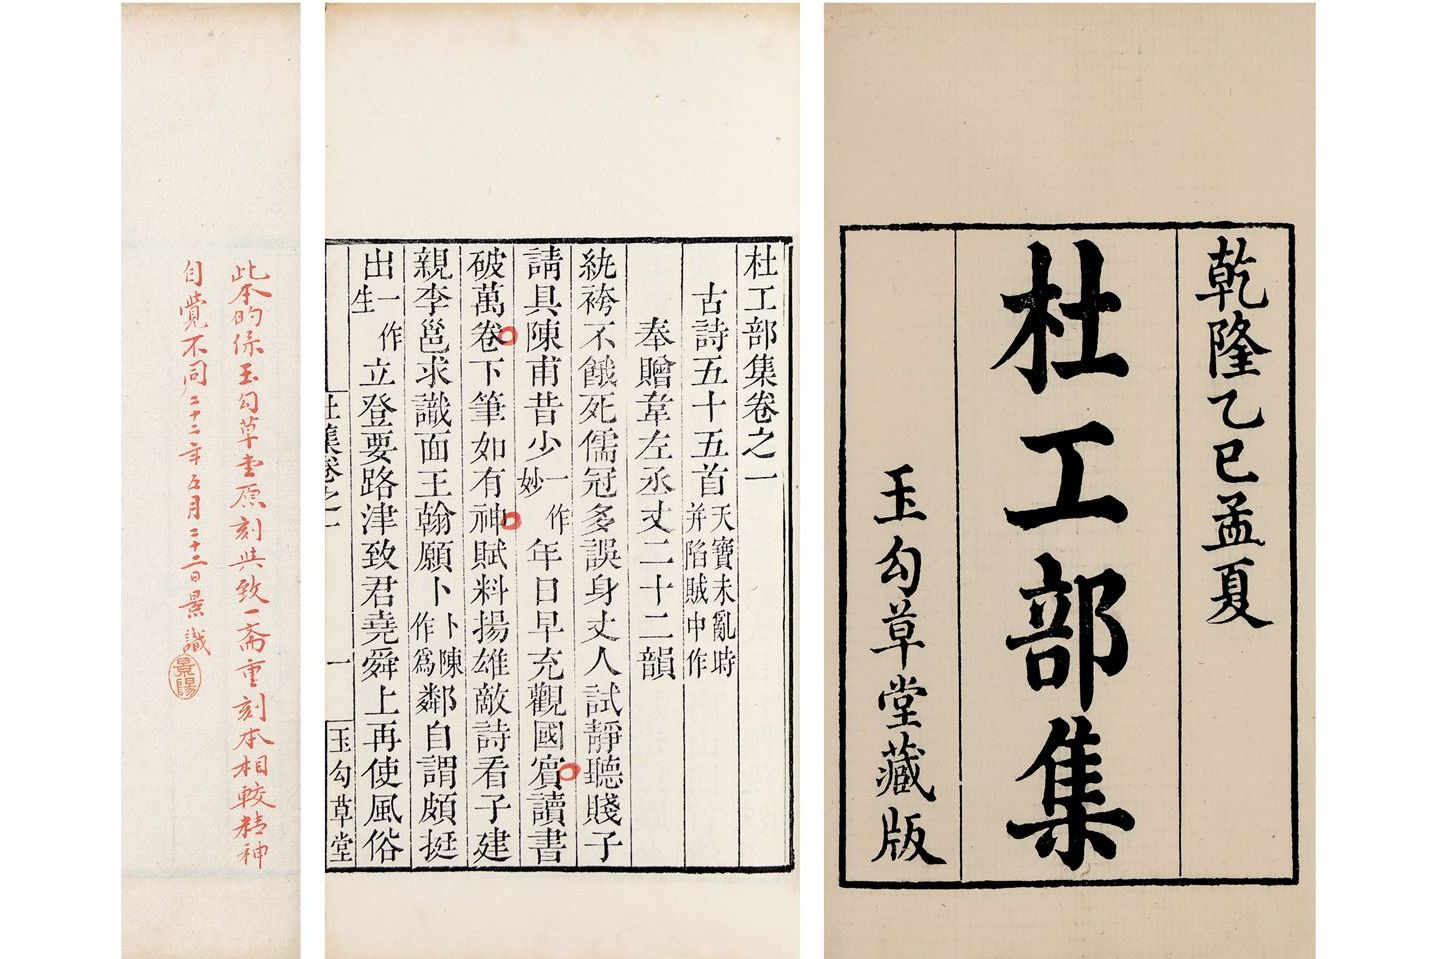 乾隆乙巳孟夏
杜工部集
玉勾草堂藏版
杜工部集卷之一
古詩五十五首天寶未亂時并陷賊中作
奉贈韋左丞丈二十二韻
紈袴不餓死儒冠多誤身丈人試靜聽賤子
請具陳甫昔少一作妙年日早充觀國賓讀書
破萬卷下筆如有神賦料揚雄敵詩看子建
親李邕求識面王翰願卜卜陳作為鄰自謂頗挺
出一作生立登要路津致君堯舜上再使風俗
杜集卷之一 一 玉勾草堂
此本的係玉勾草堂原刻與致一齋重刻本相較精神
自覺不同二十二年五月二十二日景識
景陽